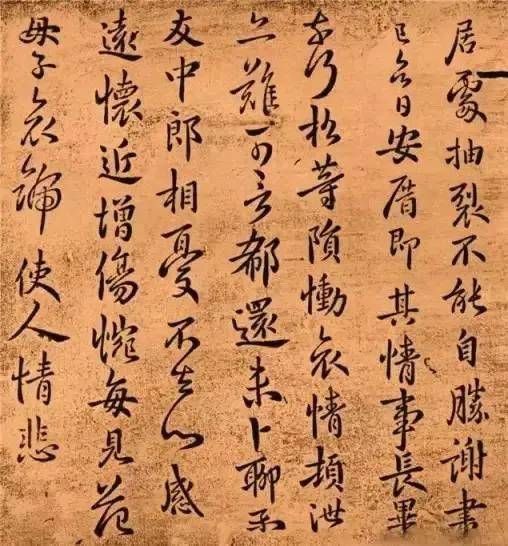 居處抽裂不能自勝謝書
已日安厝即其情事長畢
奈何松等隕慟哀情頓泄
亦難可言郗還未卜聊示
友中郎相憂不去心感
遠懷近增傷惋每見范
母子哀號使人情悲